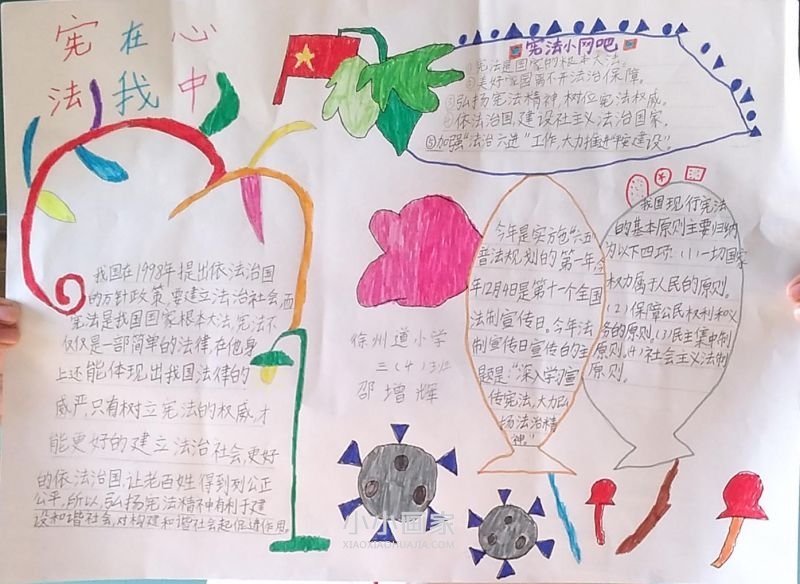 宪在心
法我中
宪法小网吧
①宪法是国家的根本大法。
②美好家园离不开法治保障。
③弘扬宪法精神,树位宪法权威。
④依法治国,建设社主义法治国家。
⑤加强"法治六进"工作,大力推进"平安建设"。
我国在1998年提出依法治国
的方针政策,要建立法治社会,而
宪法是我国国家根本大法,宪法不
仅仅是一部简单的法律在他身
上还能体现出我国法律的
威严,只有树立宪法的权威,才
能更好的建立法治社会,更好
的依法治国,让老百姓得到对公正
公平,所以,弘扬宪法精神有利于建
设和谐社会,对构建和谐社会起促进作用。
徐州道小学
三(4)班
邵增辉
今年是实施"六五
普法规划的第一年,今
年12月4日是第十一个全国
法制宣传日。今年法
制宣传日宣传的主
题是:"深入学习宣
传宪法,大力弘
扬法治精
神。"
我国现行宪法
的基本原则主要归纳
为以下四项:(1)一切国家
权力属于人民的原则。
(2)保障公民权利和义
务的原则。(3)民主集中制
原则。(4)社会主义法制
原则。
小小画家
XIAOXIAOHUAJIA.COM